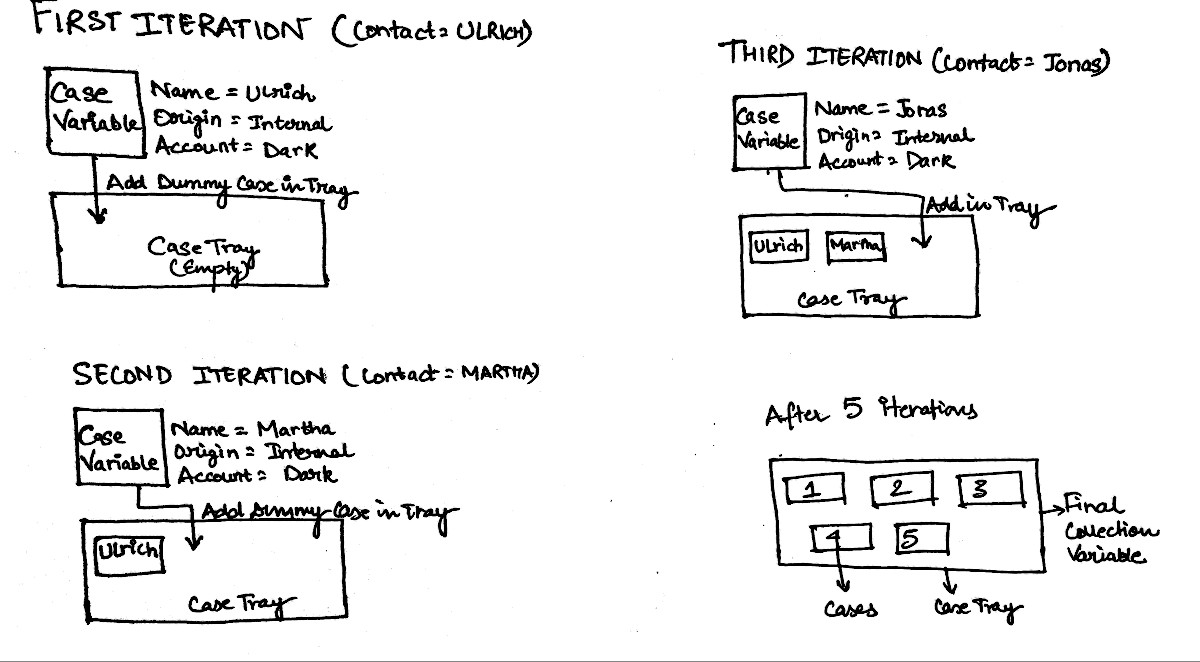 FIRST ITERATION (Contact= ULRICH)
Case
Variable
Name = Ulrich
Origin = Internal
Account = Dark
Add Dummy Case in Tray
Case Tray
(Empty)
SECOND ITERATION (Contact = MARTHA)
Case
Variable
Name = Martha
Origin = Internal
Account = Dark
Add Dummy Case in Tray
Ulrich
Case Tray
THIRD ITERATION (Contact = Jonas)
Case
Variable
Name = Jonas
Origin = Internal
Account = Dark
Add in Tray
Ulrich
Martha
Case Tray
After 5 iterations
1 2 3
4 5
Final
Collection
Variable
Cases
Case Tray